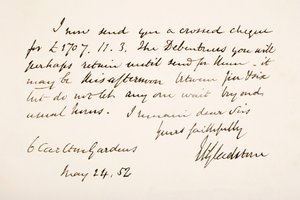 I now send you a crossed cheque
for £1707. 11. 3. The Debentures you will
perhaps retain until I send for them - it
may be this afternoon between five & six
but do not let any one wait beyond
usual hours. I remain dear Sirs
Yours faithfully
WEGladstone
6 Carlton Gardens
May 24, 52